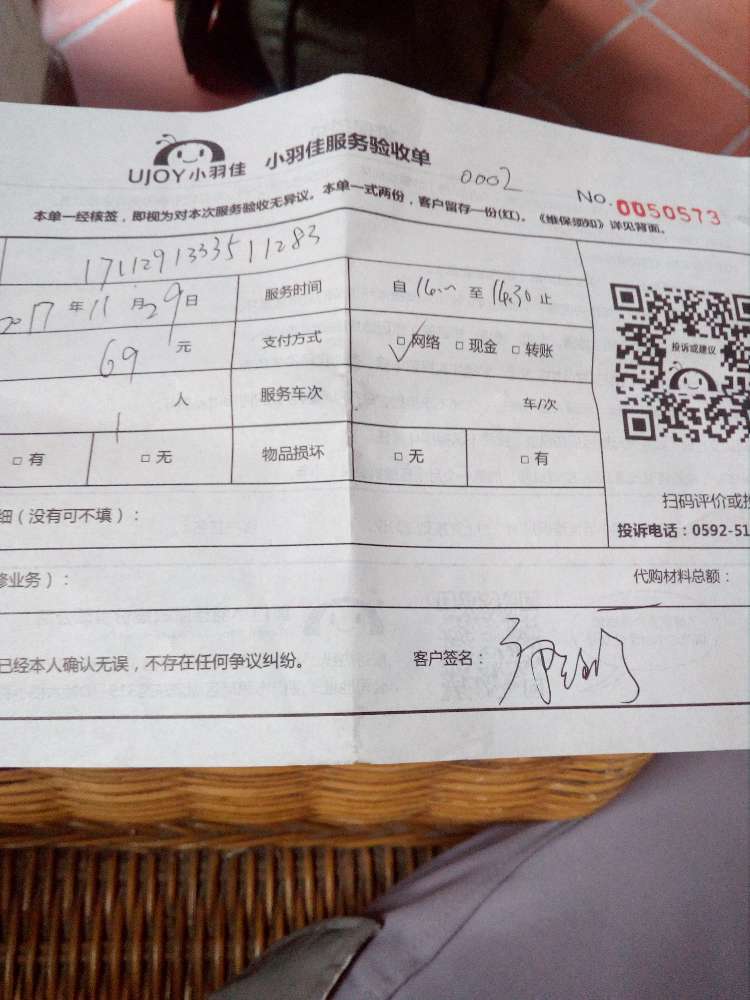 UJOY小羽佳 小羽佳服务验收单 0002 NO.0050573
本单一经核签，即视为对本次服务验收无异议。本单一式两份，客户留存一份(红)。《维保须知》详见背面。
1711291333511283
2017年11月29日 服务时间 自14:00至14:30止
69元 支付方式 ☑网络 □现金 □转账
投诉或建议
1人 服务车次 车/次
□有 □无 物品损坏 □无 □有
扫码评价或投
细（没有可不填）：
投诉电话：0592-51
修业务）：
代购材料总额：
已经本人确认无误，不存在任何争议纠纷。 客户签名：